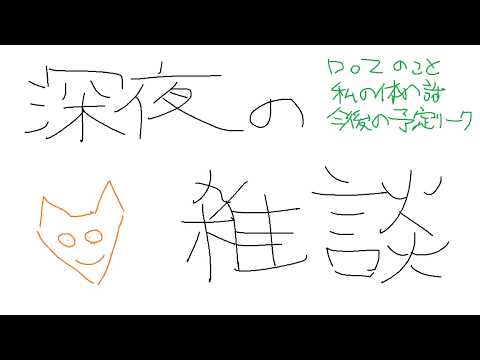 深夜の
雑談
DoZのこと
私の体の話
今後の予定リーク